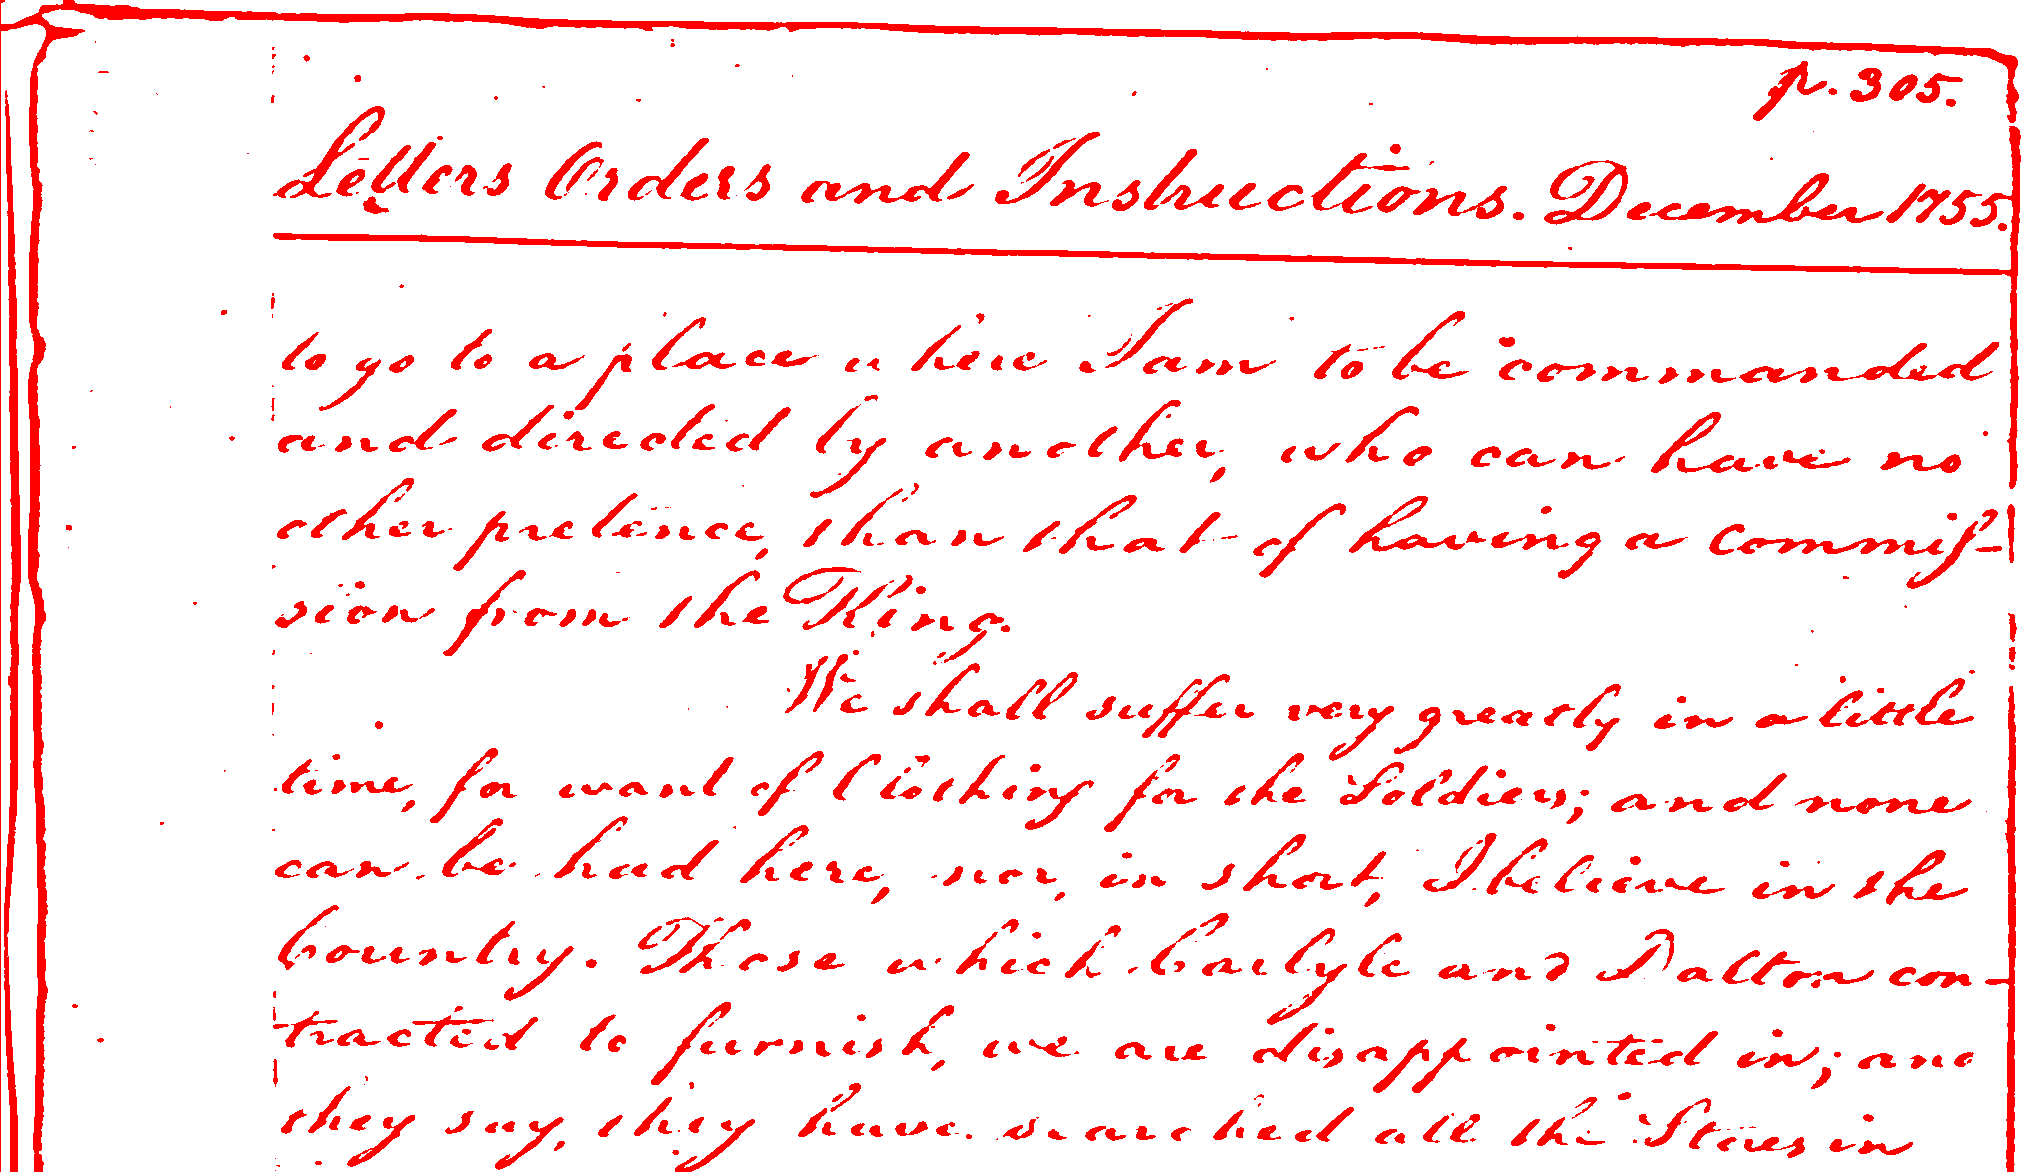 p. 305.
Letters Orders and Instructions. December 1755.
to go to a place where I am to be commanded
and directed by another, who can have no
other pretence, than that of having a commis-
sion from the King.
We shall suffer very greatly in a little
time, for want of Clothing for the Soldiers; and none
can be had here, nor, in short, I believe in the
Country. Those which Carlyle and Dalton con-
tracted to furnish, we are disappointed in; and
they say, they have searched all the Stores in